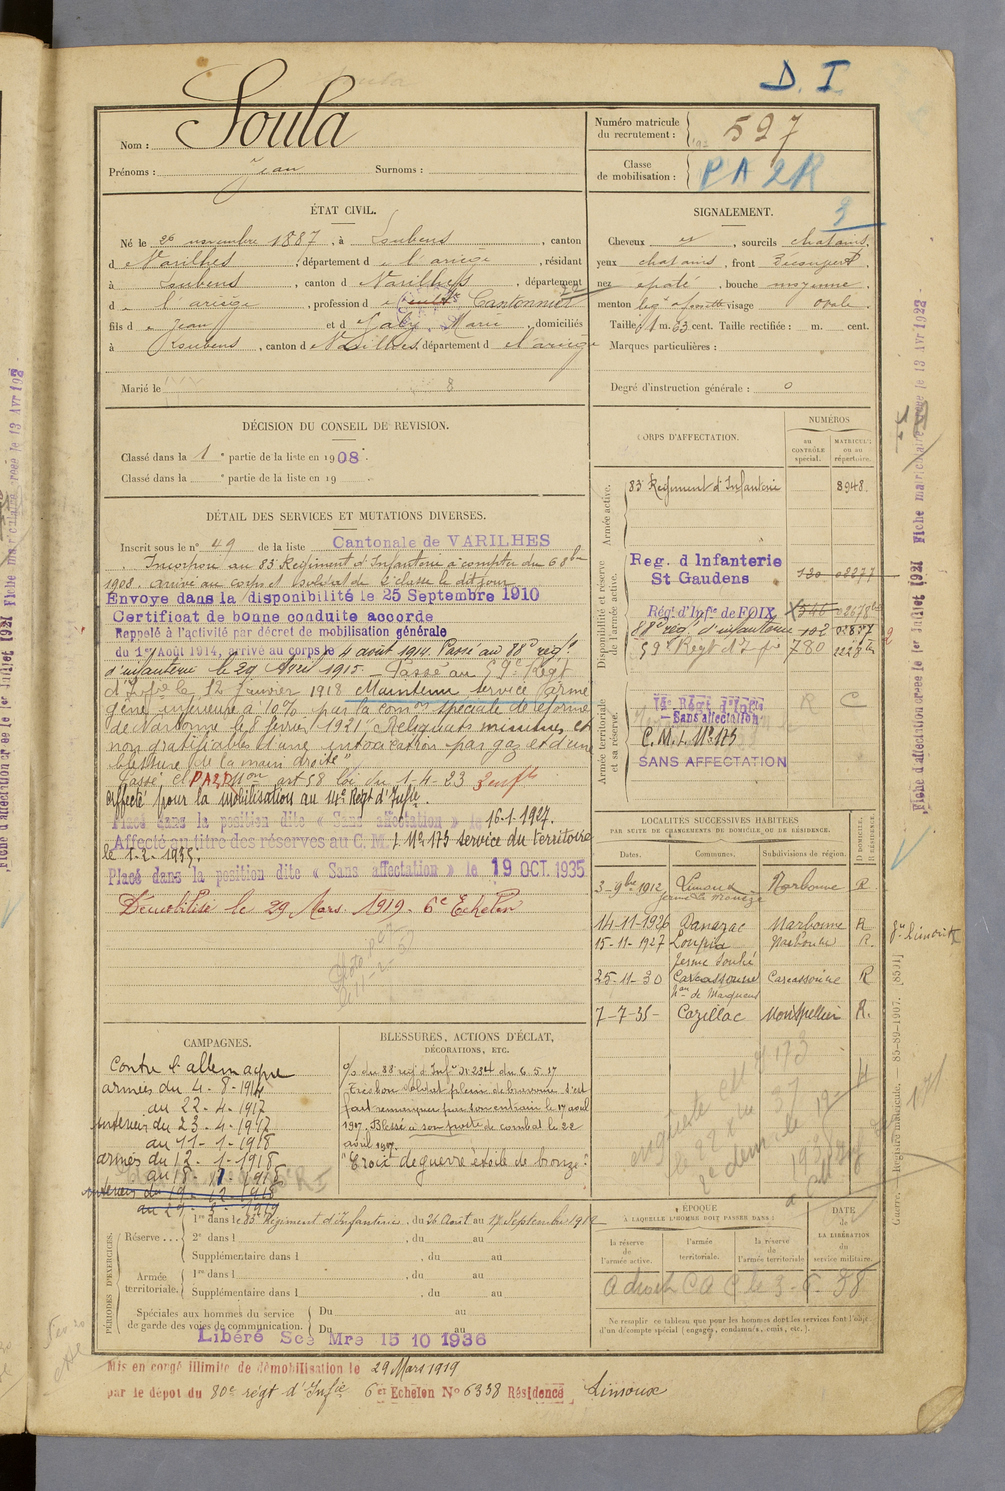 D. I.
Nom : Soula
Prénoms : Jean Surnoms :
Numéro matricule du recrutement : 597
Classe de mobilisation : PA 2R
ÉTAT CIVIL.
Né le 26 novembre 1887, à Loubens, canton
d e Varilhes, département d e l'ariège, résidant
à Loubens, canton d e Varilhes, département
d e l'ariège, profession d e Cantonnier
fils d e Jean et d e Galy, Marie, domiciliés
à Loubens, canton d e Varilhes, département d e l'ariège
Marié le
SIGNALEMENT.
3
Cheveux et, sourcils chatains,
yeux chatains, front Découvert
nez épaté, bouche moyenne,
menton visage ovale.
Taille : 1 m. 63 cent. Taille rectifiée : m. cent.
Marques particulières :
Degré d'instruction générale : 0
DÉCISION DU CONSEIL DE REVISION.
Classé dans la 1e partie de la liste en 1908.
Classé dans la e partie de la liste en 19 .
DÉTAIL DES SERVICES ET MUTATIONS DIVERSES.
Inscrit sous le n° 49 de la liste Cantonale de VARILHES
Incorporé au 83e Régiment d'Infanterie à compter du 6 8bre
1908. arrivé au corps et soldat de 2e classe le dit jour
Envoyé dans la disponibilité le 25 Septembre 1910
Certificat de bonne conduite accordé
Rappelé à l'activité par décret de mobilisation générale
du 1er Août 1914, arrivé au corps le 4 août 1914. Passé au 88e régt
d'infanterie le 29 Avril 1915 - Passé au 59e Régt
d'Infie le 12 Janvier 1918 Maintenu service armé
gêne inférieure à 10% par la comon spéciale de réforme
de Narbonne le 8 février 1921 "Reliquats minimes et
non gratifiables d'une intoxication par gaz et d'une
blessure de la main droite"
Passé cl PA2R on art 58 loi du 1-4-23 2 enfts
Affecté pour la mobilisation au 14e Régt d'Infie.
Placé dans la position dite « Sans affectation » le 16-1-1927.
Affecté au titre des réserves au C. M. I. N° 173 service du territoire
le 1-2-1935.
Placé dans la position dite « Sans affectation » le 19 OCT. 1935
Démobilisé le 29 Mars 1919. 6e Echelon
CORPS D'AFFECTATION.
NUMÉROS
au CONTRÔLE spécial.
MATRICULE ou au répertoire.
Armée active.
83e Régiment d'Infanterie 8948
Disponibilité et réserve de l'armée active.
Reg. d Infanterie
St Gaudens
Régt d'Infie de FOIX
88e régt d'infanterie 102
59e Régt d'Infie 780
Armée territoriale et sa réserve.
14e Régt d'Infie
- Sans affectation
C. M. I. N° 173
SANS AFFECTATION
LOCALITÉS SUCCESSIVES HABITÉES
PAR SUITE DE CHANGEMENTS DE DOMICILE OU DE RÉSIDENCE.
Dates. Communes. Subdivisions de région. D DOMICILE. R RÉSIDENCE.
3-9bre 1912 Limoux Narbonne R
14-11-1926 Narbonne R
15-11-1927 Loupia Narbonne R.
25-11-30 Carcassonne Carcassonne R
7-7-35- Cazillac Montpellier R.
CAMPAGNES.
Contre l'allemagne
armées du 4-8-1914
au 22-4-1917
intérieur du 23-4-1917
au 11-1-1918
armées du 12-1-1918
BLESSURES, ACTIONS D'ÉCLAT,
DÉCORATIONS, ETC.
O/ du 88e régt d'Infie N° 234 du 6.5.17
Très bon soldat plein de bravoure s'est
fait remarquer par son entrain le 17 avril
1917. Blessé à son poste de combat le 22
avril 1917.
"Croix de guerre étoile de bronze."
ÉPOQUE
À LAQUELLE L'HOMME DOIT PASSER DANS :
la réserve de l'armée active.
l'armée territoriale.
la réserve de l'armée territoriale
DATE de LA LIBÉRATION du service militaire.
Ne remplir ce tableau que pour les hommes dont les services font l'objet
d'un décompte spécial (engagés, condamnés, omis, etc.).
PÉRIODES D'EXERCICES.
Réserve...
1re dans le 83e Régiment d'Infanterie, du 26 Août au 17 Septembre 1912
2e dans l , du au
Supplémentaire dans l , du au
Armée territoriale.
1re dans l , du au
Supplémentaire dans l , du au
Spéciales aux hommes du service de garde des voies de communication.
Du au
Du au
Libéré Sce Mre 15 10 1936
Mis en congé illimité de démobilisation le 29 Mars 1919
par le dépôt du 80e régt d'Infie 6e Echelon No 6338 Résidence Limoux
Fiche d'affectation créée le 1er Juillet 1921
Fiche matriculaire créée le 13 Avr 1923